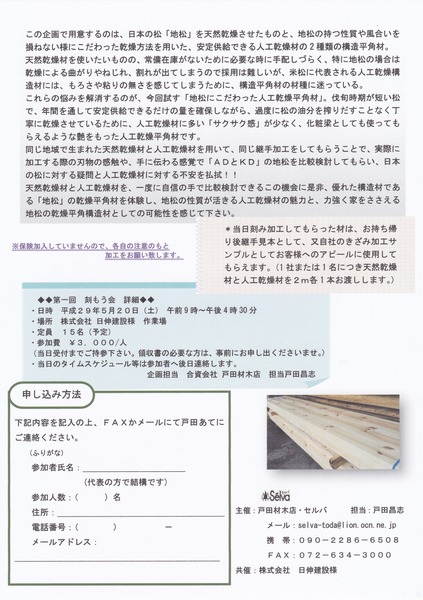 この企画で用意するのは、日本の松「地松」を天然乾燥させたものと、地松の持つ性質や風合いを
損ねない様にこだわった乾燥方法を用いた、安定供給できる人工乾燥材の２種類の構造平角材。
天然乾燥材を使いたいものの、常備在庫がないために必要な時に手配しづらく、特に地松の場合は
乾燥による曲がりやねじれ、割れが出てしまうので採用は難しいが、米松に代表される人工乾燥構
造材には、もろさや粘りの無さを感じてしまうために、構造平角材の材種に迷っている。
これらの悩みを解消するのが、今回試す「地松にこだわった人工乾燥平角材」。伐旬時期が短い松
で、年間を通して安定供給できるだけの量を確保しながら、過度に松の油分を搾りだすことなく丁
寧に乾燥させているために、人工乾燥材に多い「サクサク感」が少なく、化粧梁としても使っても
らえるような艶をもった人工乾燥平角材です。
同じ地域で生まれた天然乾燥材と人工乾燥材を用いて、同じ継手加工をしてもらうことで、実際に
加工する際の刃物の感触や、手に伝わる感覚で「ＡＤとＫＤ」の地松を比較検討してもらい、日本
の松に対する疑問と人工乾燥材に対する不安を払拭！！
天然乾燥材と人工乾燥材を、一度に自信の手で比較検討できるこの機会に是非、優れた構造材であ
る「地松」の乾燥平角材を体験し、地松の性質が活きる人工乾燥材の魅力と、力強く家をささえる
地松の乾燥平角構造材としての可能性を感じて下さい。
＊当日刻み加工してもらった材は、お持ち帰
り後継手見本として、又自社のきざみ加工サ
ンプルとしてお客様へのアピールに使用して
もらえます。（１社または１名につき天然乾燥
材と人工乾燥材を２ｍ各１本お渡しします。）
※保険加入していませんので、各自の注意のもと
加工をお願い致します。
◆◆第一回 刻もう会 詳細◆◆
・日時 平成２９年５月２０日（土） 午前９時～午後４時３０分
・場所 株式会社 日伸建設様 作業場
・定員 １５名（予定）
・参加費 ￥３，０００/人
（当日受付までご持参下さい。領収書の必要な方は、事前にお申し出くださいませ。）
・当日のタイムスケジュール等は参加者へ後日連絡します。
企画担当 合資会社 戸田材木店 担当戸田昌志
申し込み方法
下記内容を記入の上、ＦＡＸかメールにて戸田あてに
ご連絡ください。
（ふりがな）
参加者氏名：
（代表の方で結構です）
参加人数：（ ）名
住所：
電話番号：（ ） ー
メールアドレス：
Selva
主催：戸田材木店・セルバ 担当：戸田昌志
メール：selva-toda@lion.ocn.ne.jp
携 帯：０９０－２２８６－６５０８
ＦＡＸ：０７２－６３４－３０００
共催：株式会社 日伸建設様